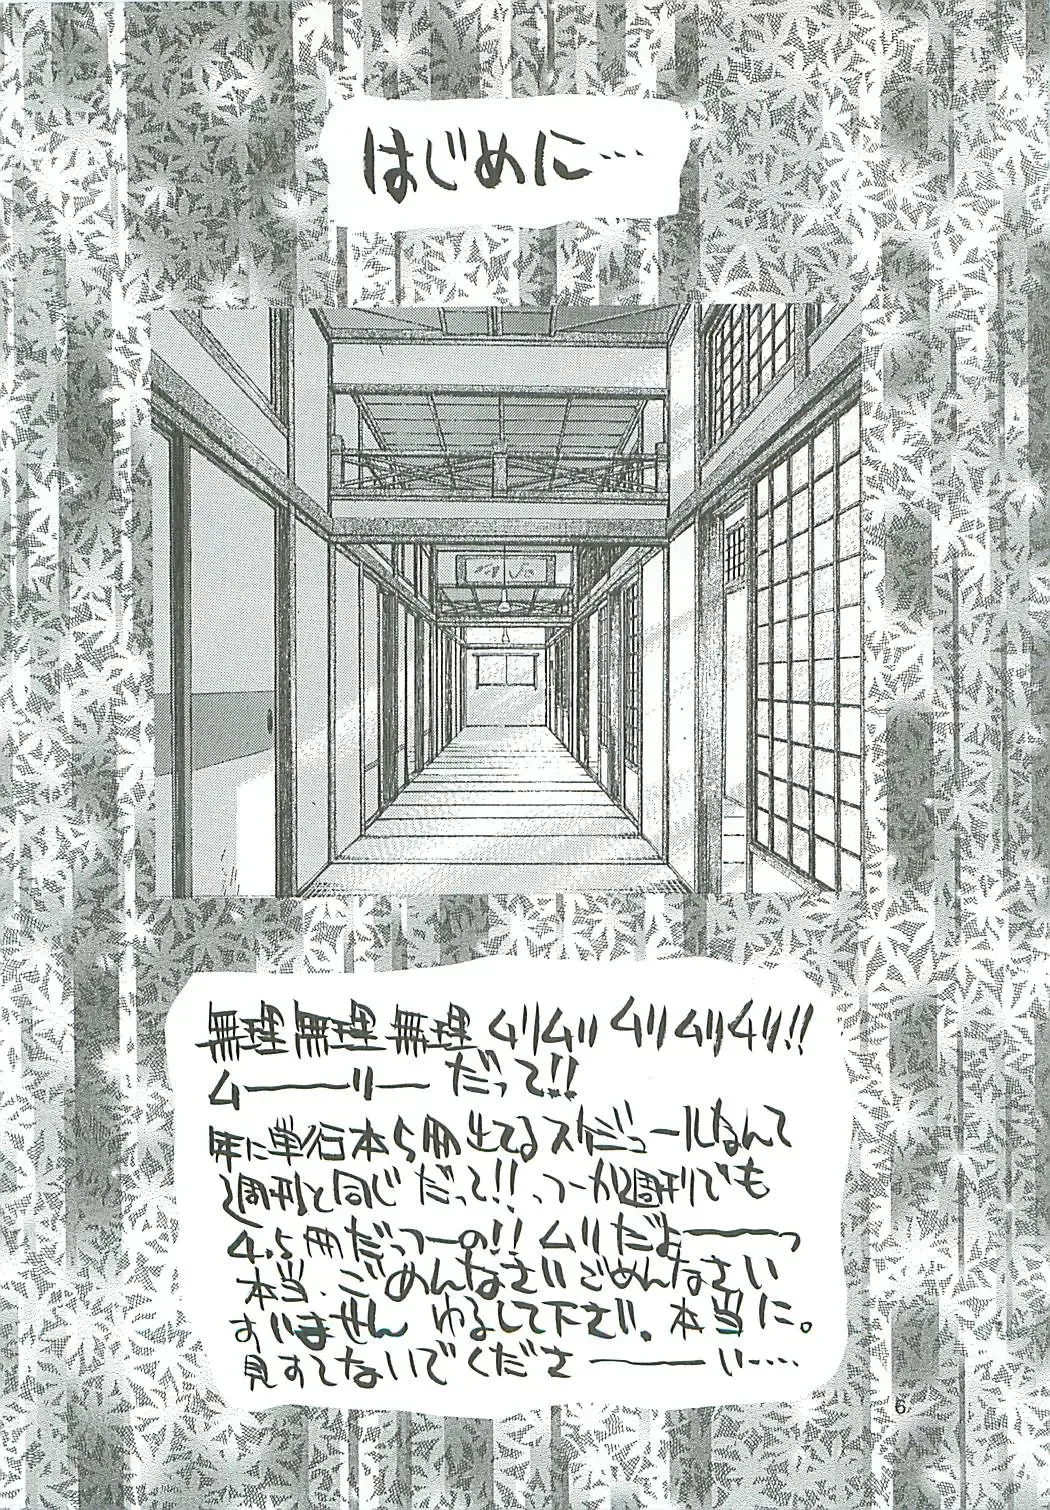 はじめに…
無理無理無理ムリムリムリムリムリ!!
ム――リ― だって!!
年に単行本5冊出てるスケジュールなんて
週刊と同じだって!!っつーか週刊でも
4、5冊だっつーの!!ムリだよ――っ
本当、ごめんなさいごめんなさい
すいません ゆるして下さい。本当に。
見すてないでくださ――い…
6